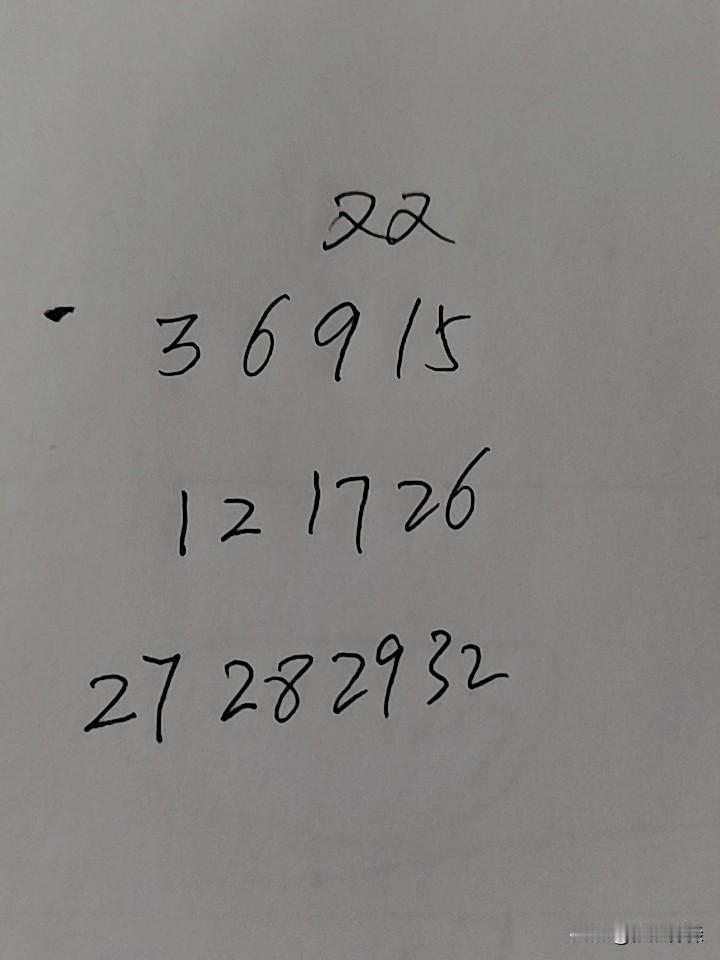 22
3 6 9 15
12 17 26
27 28 29 32